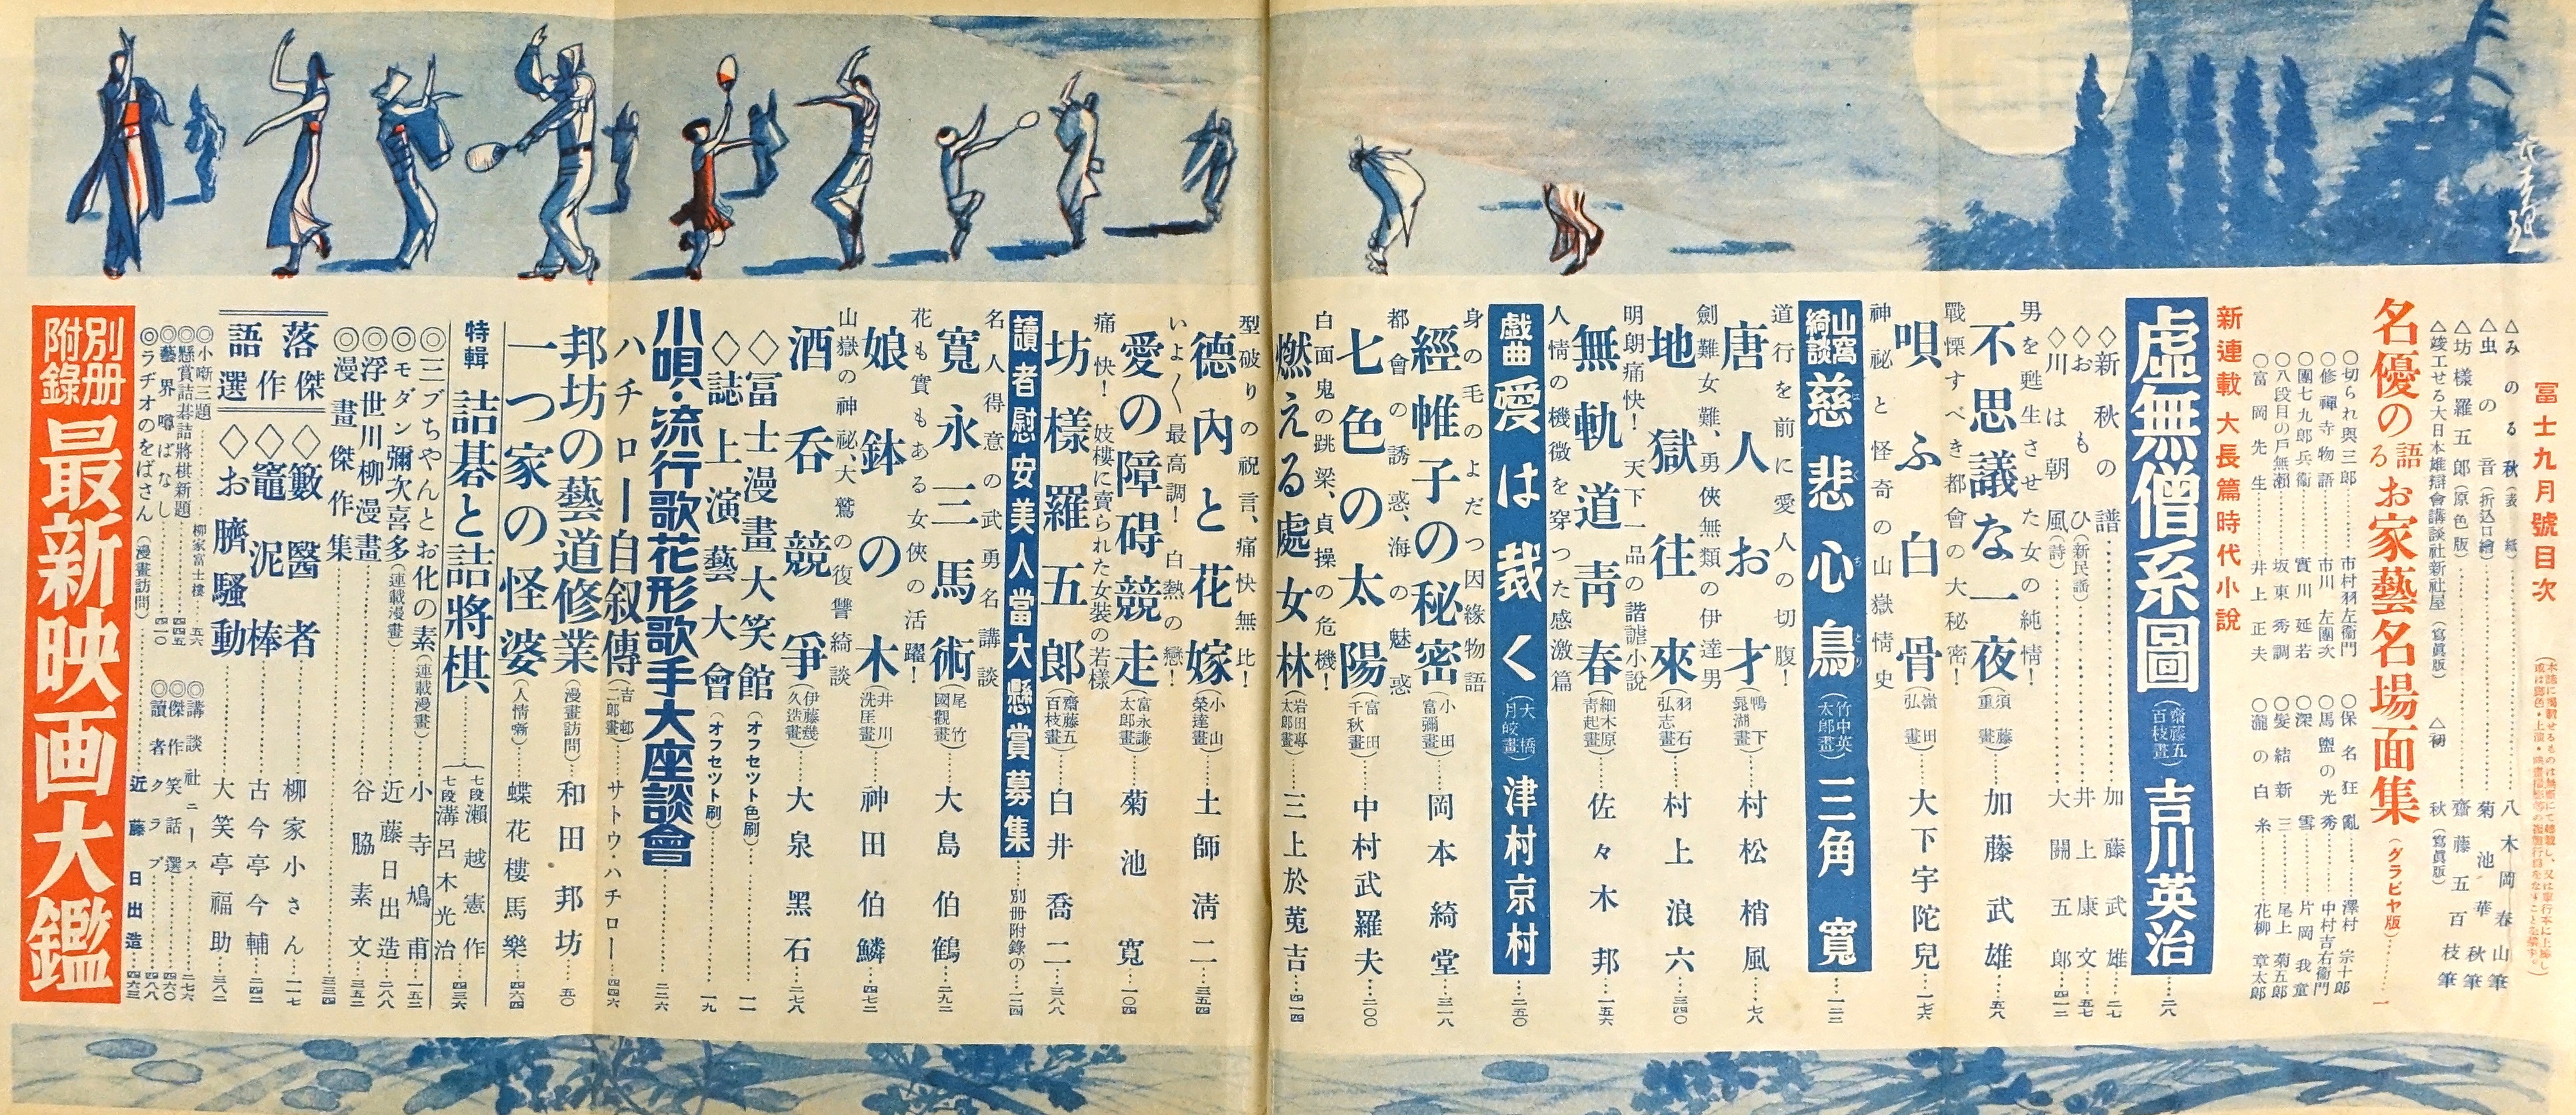 富士九月號目次
△みのる秋(表紙)……八木岡春山筆
△虫の音(折込口繪)……菊池華秋筆
△坊樣羅五郎(原色版)……齋藤五百枝筆
△竣工せる大日本雄辯會講談社新社屋(寫眞版) △初秋(寫眞版)
名優の語るお家藝名場面集(グラビヤ版)……一
○切られ與三郎……市村羽左衞門
○修禪寺物語……市川左團次
○團七九郎兵衞……實川延若
○八段目の戸無瀬……坂東秀調
○富岡先生……井上正夫
○保名狂亂……澤村宗十郎
○馬盥の光秀……中村吉右衞門
○深雪……片岡我童
○髪結新三……尾上菊五郎
○瀧の白糸……花柳章太郎
新連載大長篇時代小說
虛無僧系圖(齋藤五百枝畫)吉川英治……二八
◇新秋の譜……加藤武雄……二七
◇おもひ(新民謠)……井上康文……五七
◇川は朝風(詩)……大關五郎……四一三
男を甦生させた女の純情!
不思議な一夜(須藤重畫)……加藤武雄……五八
戰慄すべき都會の大秘密!
唄ふ白骨(嶺田弘畫)……大下宇陀兒……一七六
神秘と怪奇の山嶽情史
山窩綺談 慈悲心鳥(竹中英太郎畫)三角寬……一三二
道行を前に愛人の切腹!
唐人お才(鴨下晁湖畫)……村松梢風……七八
劍難女難、勇俠無類の伊達男
地獄往來(羽石弘志畫)……村上浪六……三四〇
明朗痛快!天下一品の諧謔小說
無軌道靑春(細木原靑起畫)……佐々木邦……一五六
人情の機微を穿つた感激篇
戲曲 愛は裁く(大橋月皎畫)津村京村……二五〇
身の毛のよだつ因緣物語
經帷子の秘密(小田富彌畫)……岡本綺堂……三一八
都會の誘惑、海の魅惑
七色の太陽(富田千秋畫)……中村武羅夫……二〇〇
白面鬼の跳梁、貞操の危機!
燃える處女林(岩田專太郎畫)……三上於菟吉……四一四
型破りの祝言、痛快無比!
德內と花嫁(小山榮達畫)……土師淸二……三五四
いよ〱最高調!白熱の戀!
愛の障碍競走(富永謙太郎畫)……菊池寬……一〇四
痛快!妓樓に賣られた女裝の若樣
坊樣羅五郎(齋藤五百枝畫)……白井喬二……三八八
讀者慰安美人當大懸賞募集……別冊附錄の……二二四
名人得意の武勇名講談
寬永三馬術(尾竹國觀畫)……大島伯鶴……二九二
花も實もある女俠の活躍!
娘鉢の木(井川洗厓畫)……神田伯鱗……四七二
山嶽の神祕、大鷲の復讐綺談
酒吞競爭(伊藤幾久造畫)……大泉黑石……二七八
◇富士漫畫大笑館(オフセツト色刷)……一一
◇誌上演藝大會(オフセツト刷)……一九
小唄・流行歌花形歌手大座談會……二二六
ハチロー自叙傳(吉邨二郎畫)……サトウ・ハチロー……四四六
邦坊の藝道修業(漫畫訪問)……和田邦坊……五〇
一つ家の怪婆(人情噺)……蝶花樓馬樂……四六四
特輯 詰碁と詰將棋……七段瀨越憲作 七段溝呂木光治……四三六
◎三ブちやんとお化の素(連載漫畫)……小寺鳩甫……一五二
◎モダン彌次喜多(連載漫畫)……近藤日出造……二八八
◎浮世川柳漫畫……谷脇素文……三五二
◎漫畫傑作集……三三四
傑作落語選
◇籔醫者……柳家小さん……一一七
◇竈泥棒……古今亭今輔……二四二
◇お臍騷動……大笑亭福助……三八二
◎小噺三題……柳家富士樓……五六
◎懸賞詰碁詰將棋新題……四四五
◎藝界噂ばなし……四一〇
◎ラヂオのをばさん(漫畫訪問)……近藤日出造……四六三
◎講談社ニュース……二七六
◎傑作笑話選……四六〇
◎讀者クラブ……四八八
別册附錄 最新映画大鑑